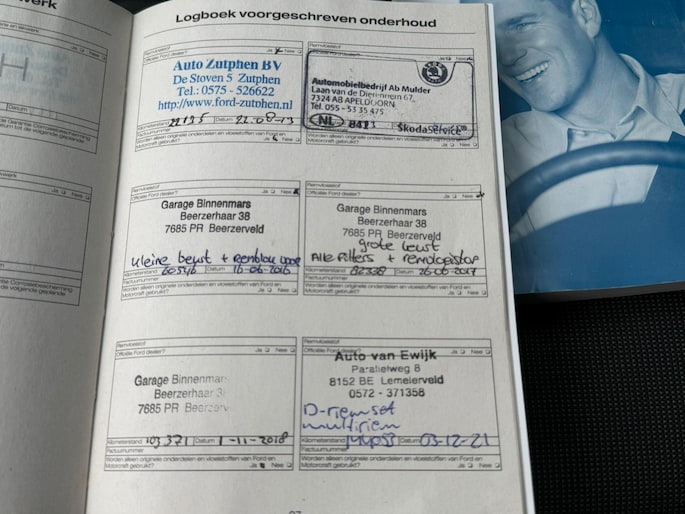 werk
Logboek voorgeschreven onderhoud
Remvloeistof
Officiële Ford dealer? Ja Nee
Auto Zutphen BV
De Stoven 5 Zutphen
Tel.: 0575 - 526622
http://www.ford-zutphen.nl
Kilometerstand Datum 22-08-13
Factuurnummer
Worden alleen originele onderdelen en vloeistoffen van Ford en
Motorcraft gebruikt? Ja Nee
Remvloeistof
Automobielbedrijf Ab Mulder
7324 AB APELDOORN
Tel. 055 - 53 35 475
NL 8413 ŠkodaService
Worden alleen originele onderdelen en vloeistoffen van Ford en
Motorcraft gebruikt? Ja Nee
Remvloeistof
Officiële Ford dealer? Ja Nee
Garage Binnenmars
Beerzerhaar 38
7685 PR Beerzerveld
Kleine beurt +
Kilometerstand Datum 16-06-2016
Factuurnummer
Worden alleen originele onderdelen en vloeistoffen van Ford en
Motorcraft gebruikt? Ja Nee
Remvloeistof
Officiële Ford dealer? Ja Nee
Garage Binnenmars
Beerzerhaar 38
7685 PR Beerzerveld
grote beurt
Alle Filters +
Kilometerstand 82338 Datum 26-06-2017
Factuurnummer
Worden alleen originele onderdelen en vloeistoffen van Ford en
Motorcraft gebruikt? Ja Nee
Remvloeistof
Officiële Ford dealer? Ja Nee
Garage Binnenmar
Beerzerhaar 3
7685 PR Beerzerv
Kilometerstand 103371 Datum 1-11-2018
Factuurnummer
Worden alleen originele onderdelen en vloeistoffen van Ford en
Motorcraft gebruikt? Ja Nee
Remvloeistof
Officiële Ford dealer? Ja Nee
Auto van Ewijk
Parallelweg 8
8152 BE Lemelerveld
0572 - 371358
D-riemset
multiriem
Kilometerstand Datum 03-12-21
Factuurnummer
Worden alleen originele onderdelen en vloeistoffen van Ford en
Motorcraft gebruikt? Ja Nee